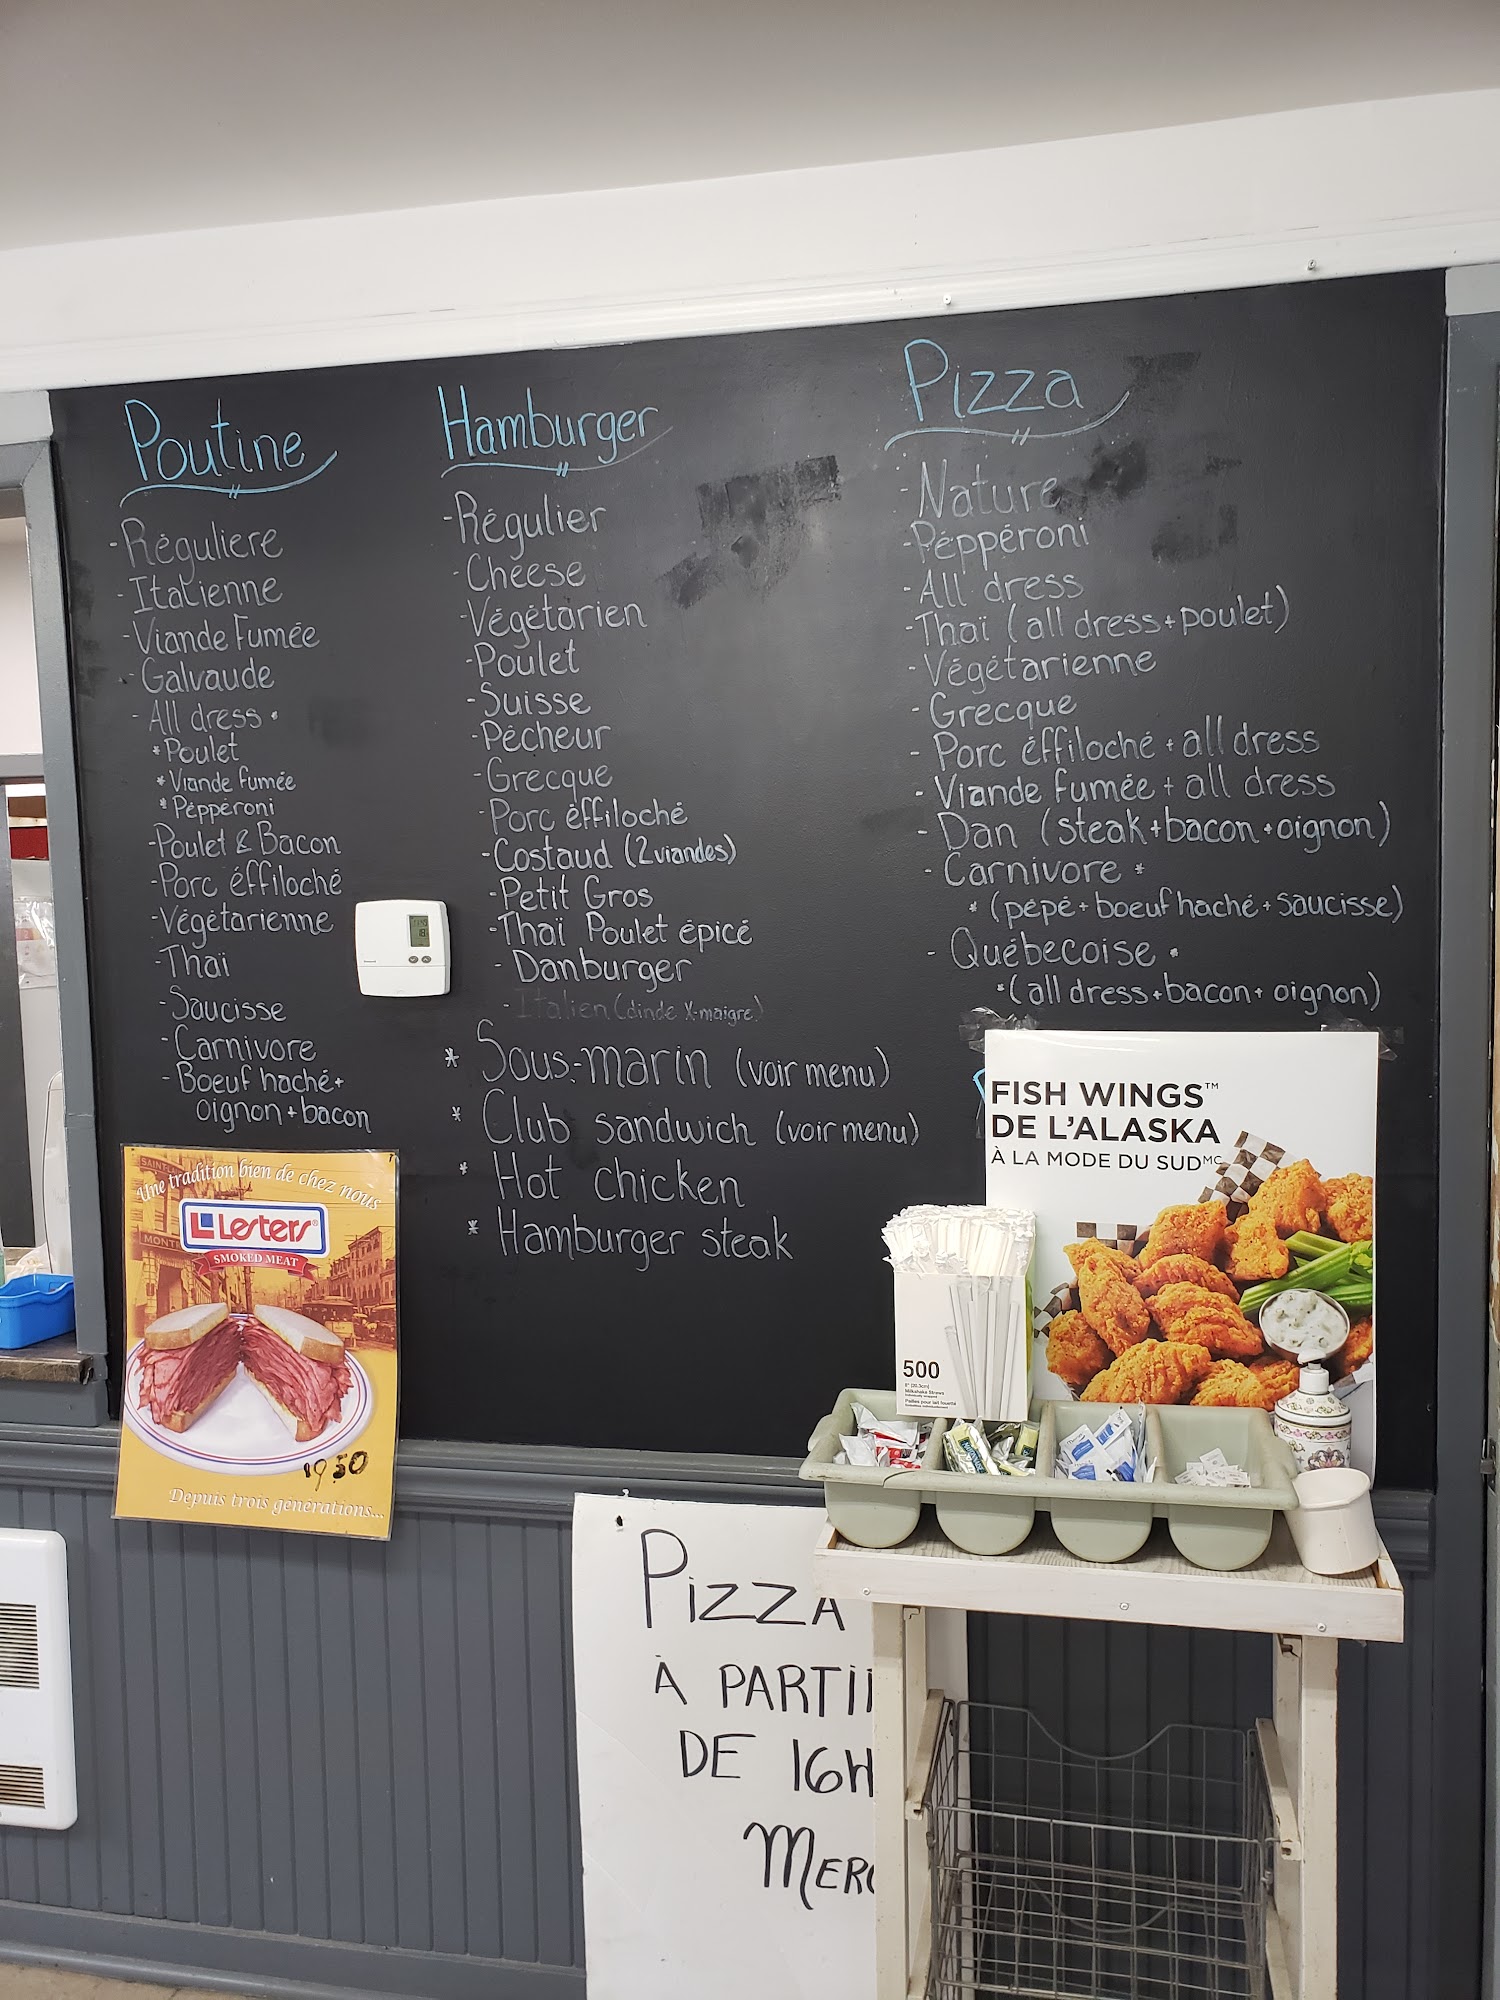 Poutine
-Régulière
-Italienne
-Viande Fumée
-Galvaude
-All dress *
*Poulet
*Viande fumée
*Pépperoni
-Poulet & Bacon
-Porc éffiloché
-Végétarienne
-Thaï
-Saucisse
-Carnivore
-Boeuf haché+
oignon+bacon
Hamburger
-Régulier
-Cheese
-Végétarien
-Poulet
-Suisse
-Pêcheur
-Grecque
-Porc éffiloché
-Costaud (2 viandes)
-Petit Gros
-Thaï Poulet épicé
-Danburger
-Italien (dinde X-maigre)
* Sous-marin (voir menu)
* Club sandwich (voir menu)
* Hot chicken
* Hamburger steak
Pizza
-Nature
-Péppéroni
-All dress
-Thaï (all dress+poulet)
-Végétarienne
-Grecque
-Porc éffiloché + all dress
-Viande fumée + all dress
-Dan (steak+bacon+oignon)
-Carnivore *
* (pépé+boeuf haché+saucisse)
-Québecoise *
*(all dress+bacon+oignon)
Une tradition bien de chez nous
Lesters®
SMOKED MEAT
19.50
Depuis trois générations...
FISH WINGS™
DE L'ALASKA
À LA MODE DU SUD MC
500
Milkshake Straws
PIZZA
À PARTI
DE 16H
MERC